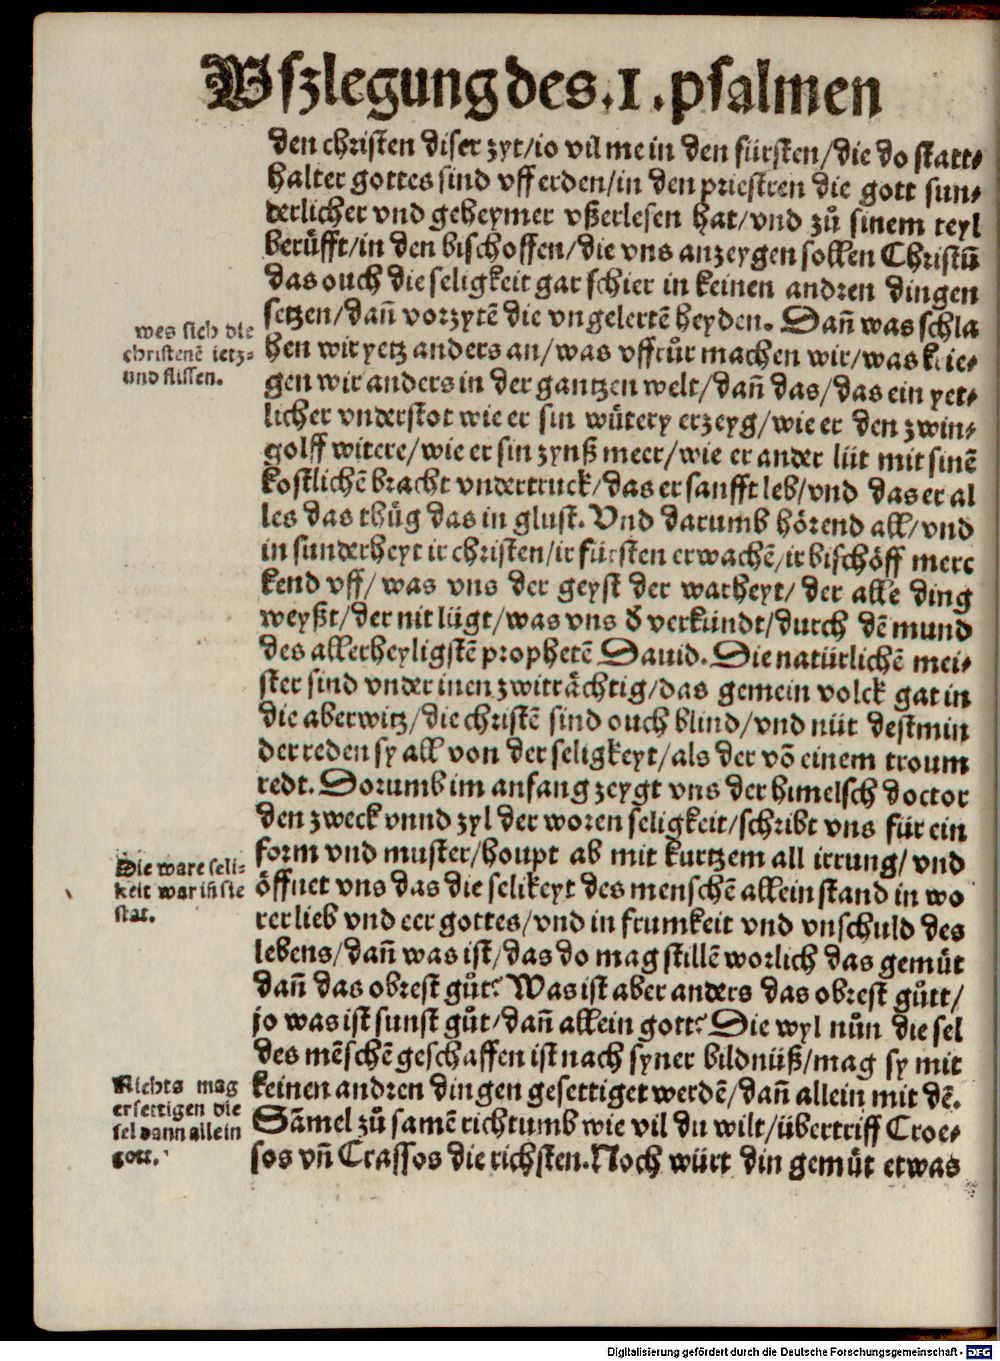 Vſzlegung des .1. pſalmen
den chriſten diſer zyt/io vil me in den fürſten/die do ſtatt⸗
halter gottes ſind vff erden/in den prieſtren die gott ſun⸗
derlicher vnd geheymer vßerleſen hat/vnd zů ſinem teyl
berüfft/in den biſchoffen/die vns anzeygen ſollen Chriſtū
das ouch die ſeligkeit gar ſchier in keinen andren dingen
ſetzen/dañ vorzytē die vngelertē heyden. Dañ was ſchla
wes ſich die
chriſtenē ietz⸗
und fliſſen.
hen wir yetz anders an/was vffrůr machen wir/was krie⸗
gen wir anders in der gantzen welt/dañ das/das ein yet⸗
licher vnderſtot wie er ſin wütery erzeyg/wie er den zwin⸗
golff witere/wie er ſin zynß meer/wie er ander lüt mit ſinē
koſtlichē bracht vndertruck/das er ſanfft leb/vnd das er al
les das thüg das in gluſt. Vnd darumb hörend all/vnd
in ſunderheyt ir chriſten/ir fürſten erwachē/ir biſchöff merc
kend vff/was vns der geyſt der warheyt/der alle ding
weyßt/der nit lügt/was vns ð verkündt/durch dē mund
des allerheyligſtē prophetē Dauid. Die natürlichē mei⸗
ſter ſind vnder inen zwitrǎchtig/das gemein volck gat in
die aberwitz/die chriſtē ſind ouch blind/vnd nüt deſtmin
der reden ſy all von der ſeligkeyt/als der vō einem troum
redt. Dorumb im anfang zeygt vns der himelſch doctor
den zweck vnnd zyl der woren ſeligkeit/ſchribt vns für ein
form vnd muſter/houpt ab mit kurtzem all irrung/vnd
Die ware ſeli⸗
keit war iñ ſie
ſtat.
öffnet vns das die ſelikeyt des menſchē allein ſtand in wo
rer lieb vnd eer gottes/vnd in frumkeit vnd vnſchuld des
lebens/dañ was iſt/das do mag ſtillē worlich das gemüt
dañ das obreſt gůt? Was iſt aber anders das obreſt gůtt/
jo was iſt ſunſt gůt/dañ allein gott? Die wyl nůn die ſel
des mēſchē geſchaffen iſt nach ſyner bildnüß/mag ſy mit
Nichts mag
erſettigen die
ſel dann allein
gott.
keinen andren dingen geſettiget werdē/dañ allein mit dē.
Sāmel zů ſamē richtumb wie vil du wilt/übertriff Croe⸗
ſos vñ Craſſos die richſten. Noch würt din gemüt etwas
Digitalisierung gefördert durch die Deutsche Forschungsgemeinschaft - DFG